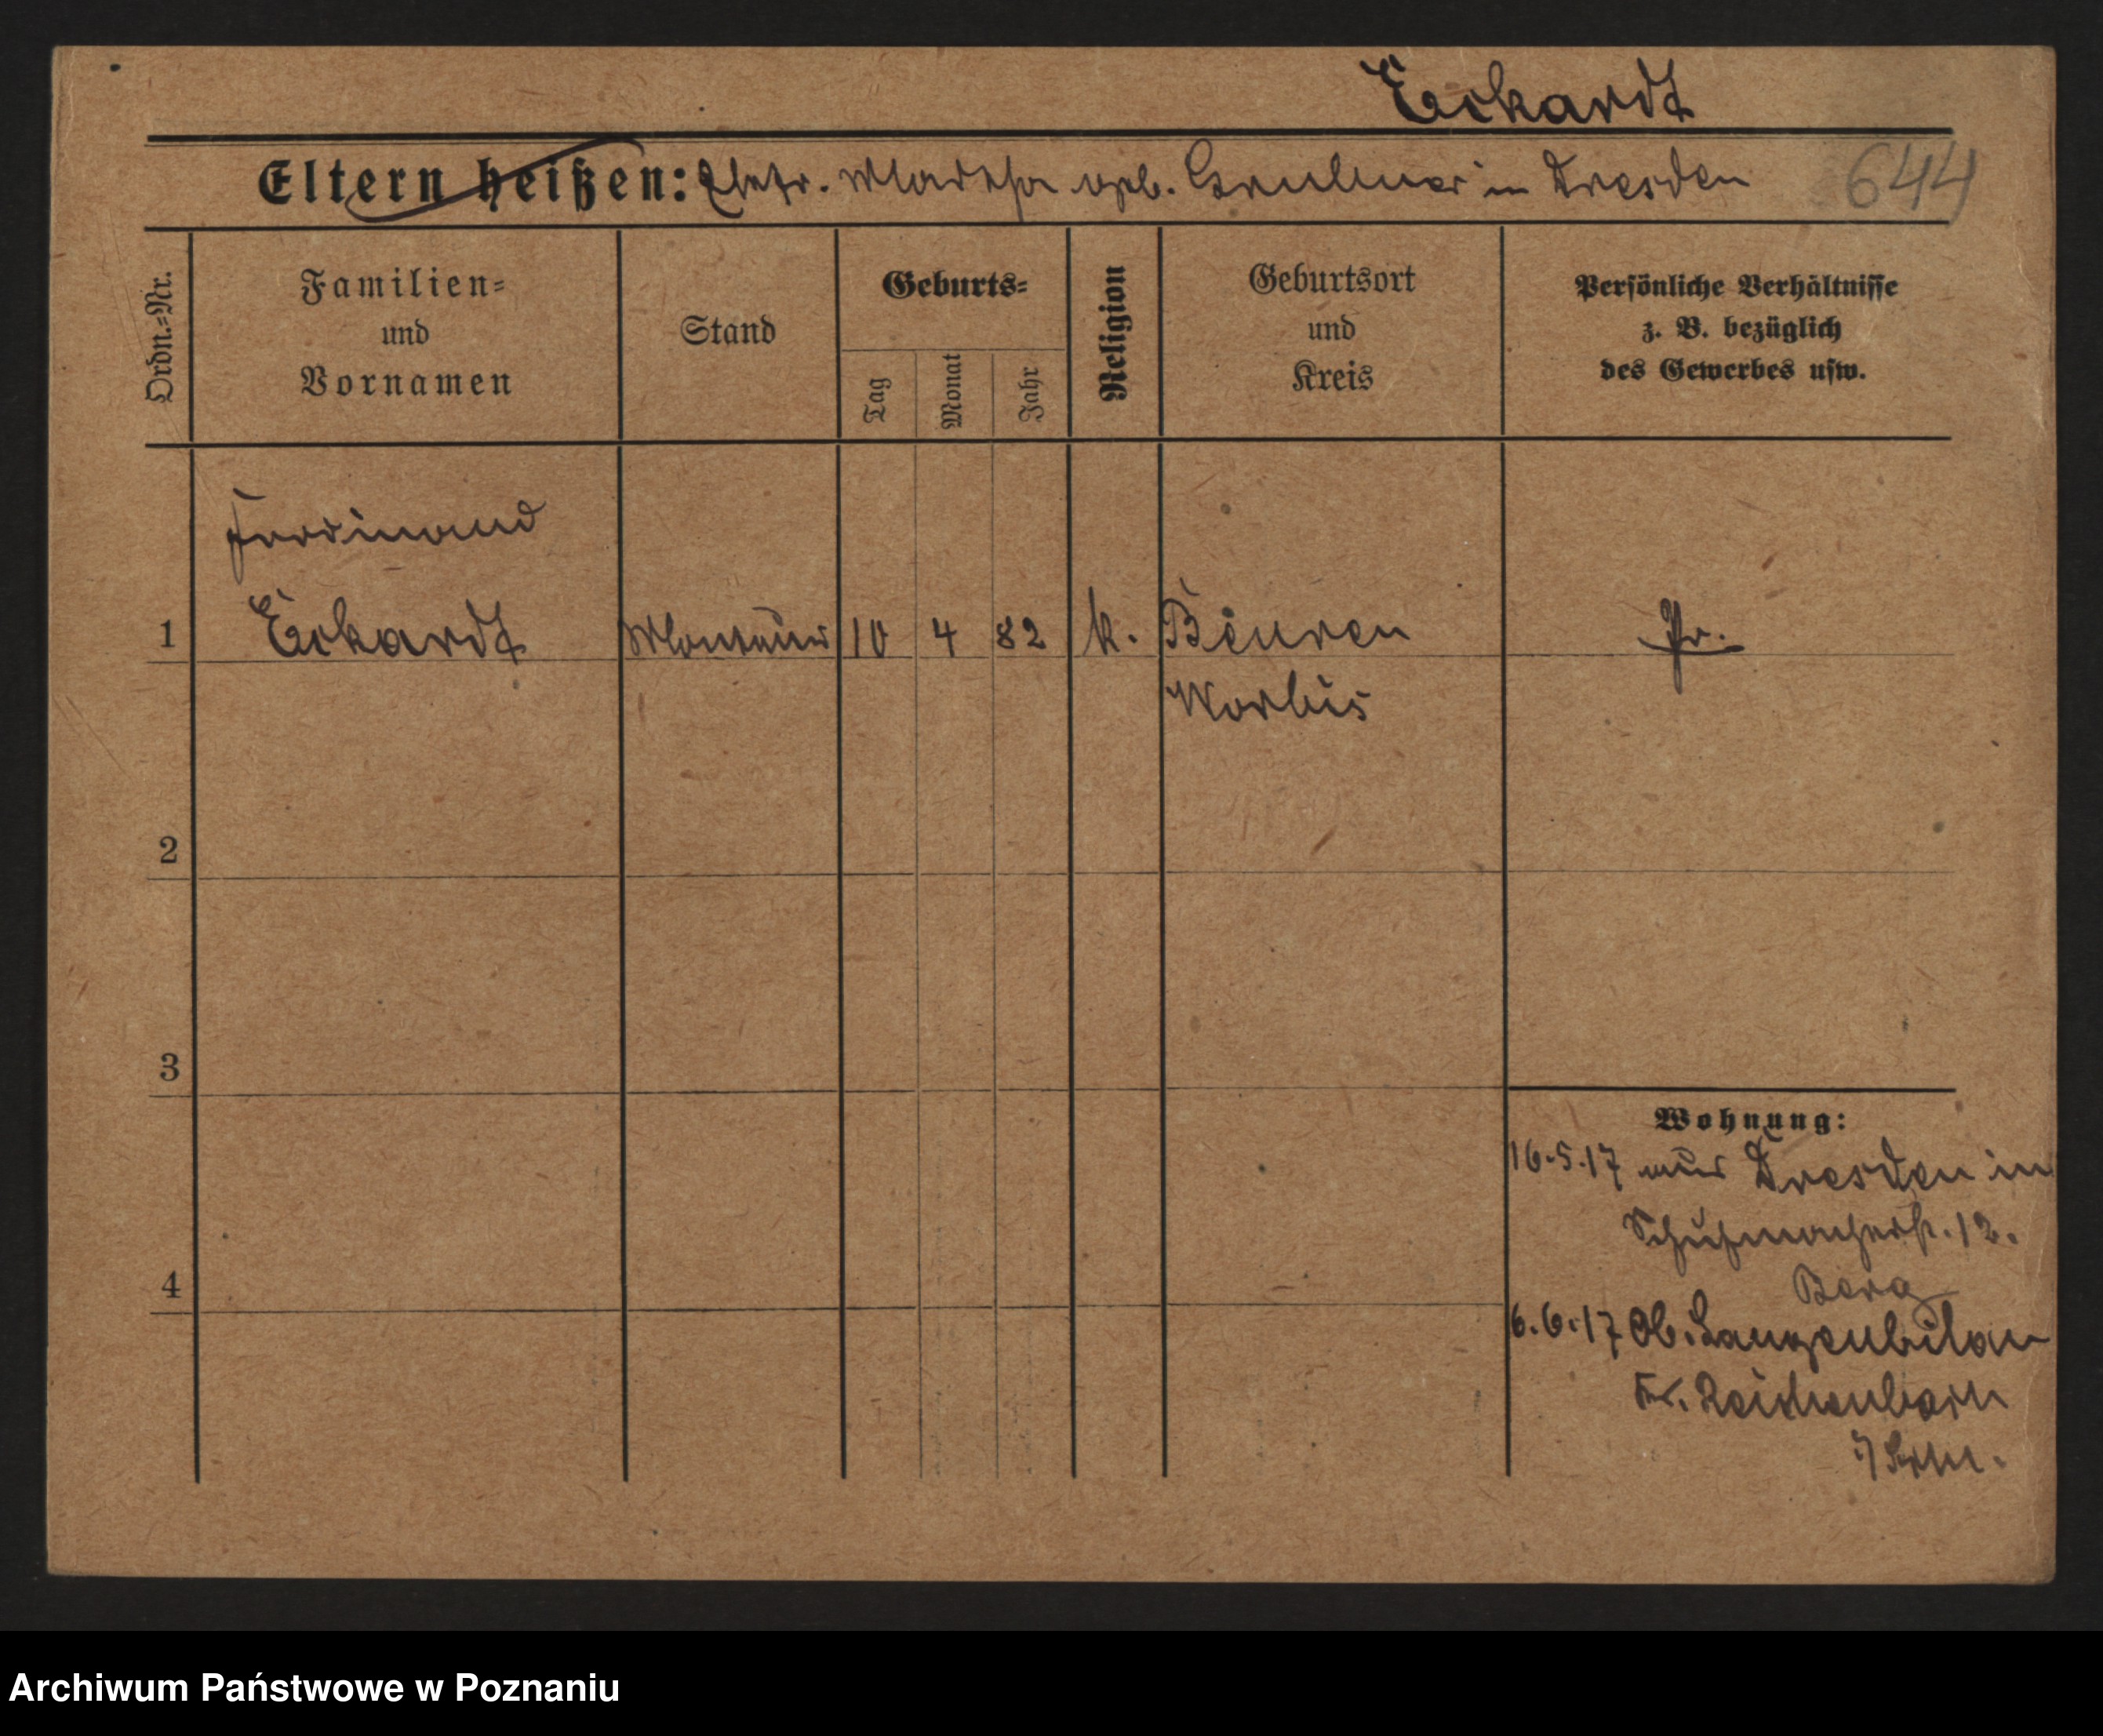 Eckardt
Eltern heißen: Ehefr. Martha geb. Grubner in Dresden 644
Ordn.=Nr.
Familien=
und
Vornamen
Stand
Geburts=
Tag
Monat
Jahr
Religion
Geburtsort
und
Kreis
Persönliche Verhältnisse
z. B. bezüglich
des Gewerbes usw.
Ferdinand
1 Eckardt Monteur 10 4 82 k. Beuren Pr.
Worbis
2
3
Wohnung:
16.5.17 aus Dresden in
Schuhmacherstr. 12.
Berg
4
6.6.17 Ob. Langenbilau
Kr. Reichenbach